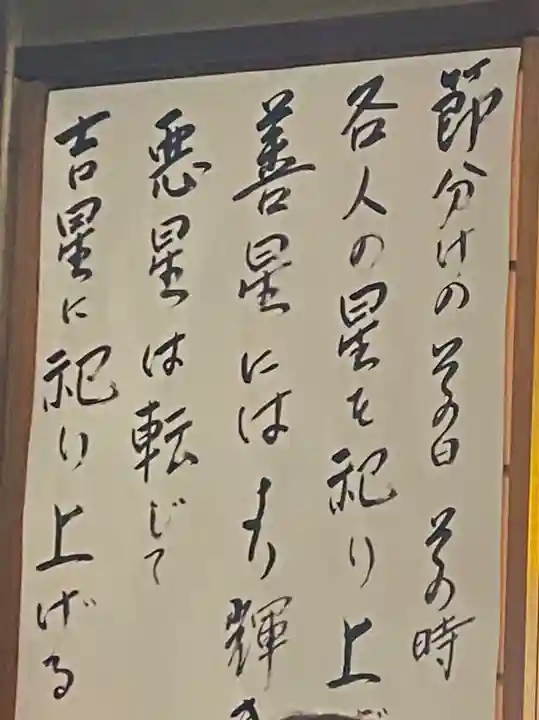 節分けの その日 その時
各人の星を祀り上げ
善星には より輝き
悪星は転じて
吉星に祀り上げる